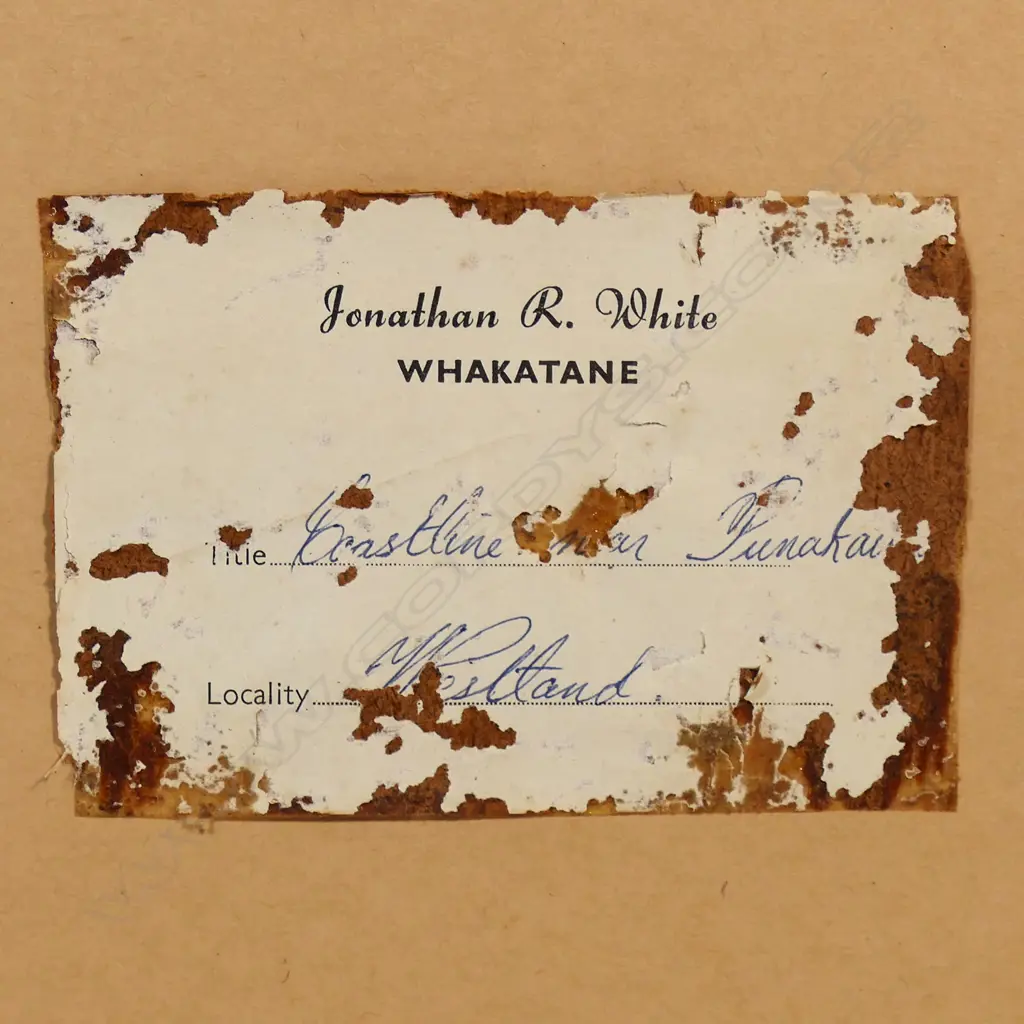 Jonathan R. White
WHAKATANE
Title Coastline near Punakai
Locality Westland.